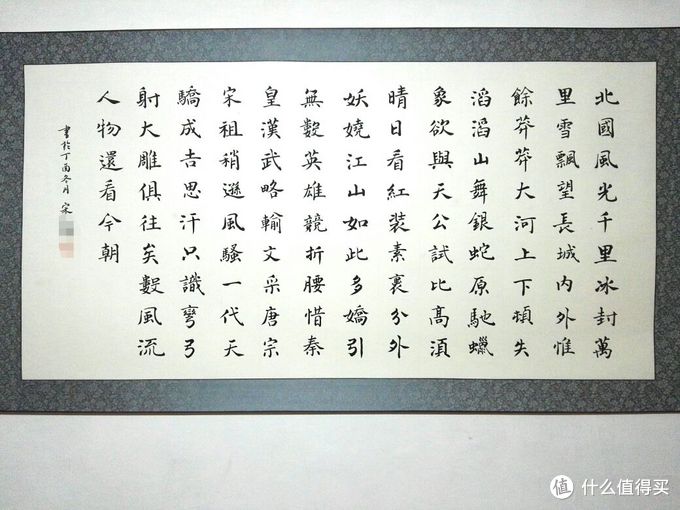 北國風光千里冰封萬
里雪飄望長城内外惟
餘莽莽大河上下頓失
滔滔山舞銀蛇原馳蠟
象欲與天公試比高須
晴日看紅裝素裹分外
妖嬈江山如此多嬌引
無數英雄競折腰惜秦
皇漢武略輸文采唐宗
宋祖稍遜風騷一代天
驕成吉思汗只識彎弓
射大雕俱往矣數風流
人物還看今朝
書於丁酉冬月 宋
值 什么值得买